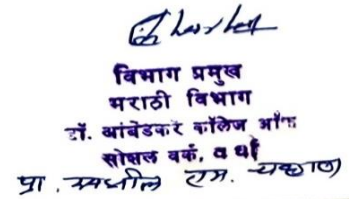 विभाग प्रमुख
मराठी विभाग
डॉ. आंबेडकर कॉलेज ऑफ
सोशल वर्क, वर्धा
प्रा. एम. चव्हाण